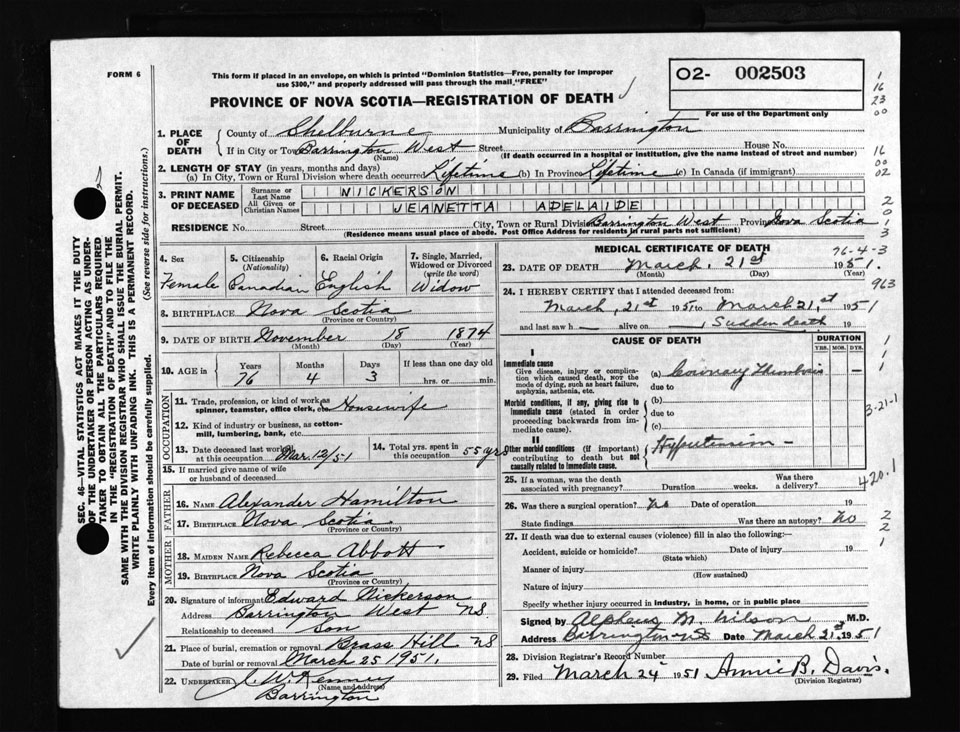 FORM 6
This form if placed in an envelope, on which is printed "Dominion Statistics—Free, penalty for improper
use $300," and properly addressed will pass through the mail "FREE"
PROVINCE OF NOVA SCOTIA—REGISTRATION OF DEATH
02- 002503
For use of the Department only
1
16
23
00
16
00
02
2
0
1
3
1. PLACE OF DEATH
County of Shelburne Municipality of Barrington
If in City or Town Barrington West Street House No.
(Name) (If death occurred in a hospital or institution, give the name instead of street and number)
2. LENGTH OF STAY (in years, months and days)
(a) In City, Town or Rural Division where death occurred Lifetime (b) In Province Lifetime (c) In Canada (if immigrant)
3. PRINT NAME OF DECEASED
Surname or Last Name NICKERSON
All Given or Christian Names JEANETTA ADELAIDE
RESIDENCE No. Street City, Town or Rural Division Barrington West Province Nova Scotia
(Residence means usual place of abode. Post Office Address for residents in rural parts not sufficient)
4. Sex
Female
5. Citizenship
(Nationality)
Canadian
6. Racial Origin
English
7. Single, Married,
Widowed or Divorced
(write the word)
Widow
8. BIRTHPLACE Nova Scotia
(Province or Country)
9. DATE OF BIRTH November 18 1874
(Month) (Day) (Year)
10. AGE in
Years Months Days If less than one day old
76 4 3 hrs. or min.
OCCUPATION
11. Trade, profession, or kind of work as
spinner, teamster, office clerk, etc. Housewife
12. Kind of industry or business, as cotton-
mill, lumbering, bank, etc.
13. Date deceased last worked
at this occupation Mar. 12/51
14. Total yrs. spent in
this occupation 55 yrs
15. If married give name of wife
or husband of deceased
FATHER
16. NAME Alexander Hamilton
17. BIRTHPLACE Nova Scotia
(Province or Country)
MOTHER
18. MAIDEN NAME Rebecca Abbott
19. BIRTHPLACE Nova Scotia
(Province or Country)
20. Signature of informant Edward Nickerson
Address Barrington West NS
Relationship to deceased Son
21. Place of burial, cremation or removal Brass Hill NS
Date of burial or removal March 25 1951.
22. UNDERTAKER W. Kenney
(Name and address)
Barrington
MEDICAL CERTIFICATE OF DEATH
76-4-3
23. DATE OF DEATH March. 21st 1951.
(Month) (Day) (Year)
963
24. I HEREBY CERTIFY that I attended deceased from:
March, 21st 1951 to March 21,st 1951
and last saw h alive on , Sudden death 19
CAUSE OF DEATH
DURATION
YRS. MOS. DYS.
I
Immediate cause
Give disease, injury or complica-
tion which caused death, NOR the
mode of dying, such as heart failure,
asphyxia, asthenia, etc.
(a) Coronary Thrombosis —
due to
Morbid conditions, if any, giving rise to
immediate cause (stated in order
proceeding backwards from im-
mediate cause).
(b)
due to
(c)
II
Other morbid conditions (if important)
contributing to death but not
causally related to immediate cause.
Hypertension —
1
1
1
3-21-1
420.1
2
2
1
25. If a woman, was the death
associated with pregnancy? Duration weeks. Was there
a delivery?
26. Was there a surgical operation? No Date of operation 19
State findings Was there an autopsy? No
27. If death was due to external causes (violence) fill in also the following:—
Accident, suicide or homicide? Date of injury 19
(State which)
Manner of injury
(How sustained)
Nature of injury
Specify whether injury occurred in industry, in home, or in public place
Signed by Alpheus M. Wilson M.D.
Address Barrington NS Date March 21st 1951
28. Division Registrar's Record Number
29. Filed March 24 1951 Annie B. Davis.
(Division Registrar)
SEC. 46—VITAL STATISTICS ACT MAKES IT THE DUTY
OF THE UNDERTAKER OR PERSON ACTING AS UNDER-
TAKER TO OBTAIN ALL THE PARTICULARS REQUIRED
IN THE "REGISTRATION OF DEATH" AND TO FILE THE
SAME WITH THE DIVISION REGISTRAR WHO SHALL ISSUE THE BURIAL PERMIT.
WRITE PLAINLY WITH UNFADING INK. THIS IS A PERMANENT RECORD.
Every item of information should be carefully supplied. (See reverse side for instructions.)